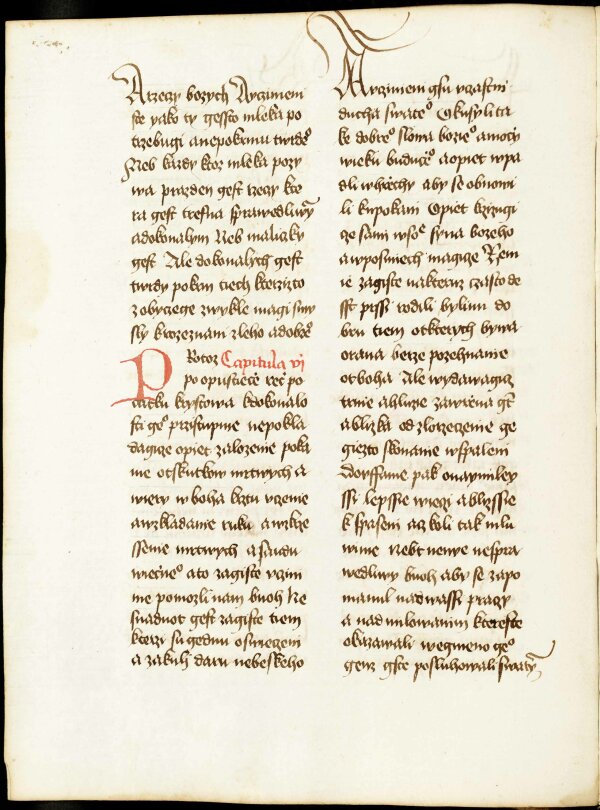 A rzeczy bozych Vczinieni
ste yako ty gessto mleka po
trzebugi a nepokrmu twrde°
Neb kazdy ktoz mleka pozy
wa prazden gest rzeczy kte
ra gest trestna sprawedliwy
a dokonalym Neb maliczky
gest Ale dokonalych gest
twrdy pokrm tiech kterzizto
z obyczege zwykle magi smy
sly k rozeznani zleho a dobre°
Protoz Capitula vi
po opustiece rec po
czatku krystowa k dokonalo
sti ge° przistupme nepokla
dagize opiet zalozenie poka
nie ot skutkow mrtwych a
wiery w boha krztu vczenie
a wzkladanie ruku a wzkrze
ssenie mrtwych a saudu
wiecne° a to zagiste vczini
me pomozli nam buoh Ne
snadnot gest zagiste tiem
kterzi su gednu oswieceni
a zakusy daru nebeskeho
A vczinieni gsu vczastni
ducha swate° Okusyli ta
ke dobre° slowa bozie° a moczy
wieku buduce° a opiet wpa
dli w hrziechy aby se obnowi
li ku pokani Opiet krzizugi
cze sami w sobe syna bozeho
a w posmiech magicze Zem
ie zagiste na kteruz czasto de
sst prssi rodili bylinu do
bru tiem ot kterych bywa
orana berze pozehnanie
ot boha Ale wydawagicz
trnie a hlozie zawrzena gt
a blizka od zlorzeczenie ge
giezto skonanie w spaleni
Dorffame pak o was naymiley
ssi lepssie wieczi a blizssie
k spaseni acz koli tak mlu
wime nebt nenye nespra
wedliwy buoh aby se zapo
manul nad wassi praczy
a nad milowanim ktereste
okazawali we gmeno ge°
genz gste posluhowali swaty